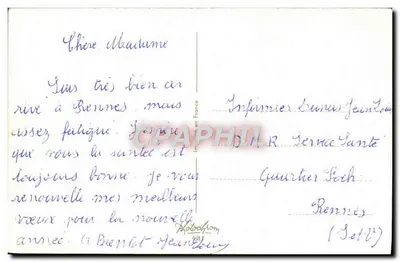 Chère Madame
Suis très bien ar
rivé à Rennes mais
assez fatigué. J'espère
que vous la santé est
toujours bonne. Je vous
renouvelle mes meilleurs
vœux pour la nouvelle
année. A Bientot Jean Louis
Infirmier Jean Louis
Service Santé
Quartier Foch
Rennes
(I et V)
CPAPHIL
Photochrom